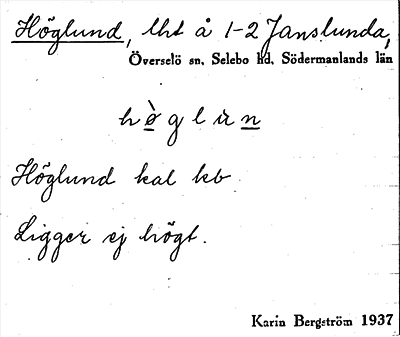 Höglund, lht å 1-2 Janslunda,
Överselö sn, Selebo hd, Södermanlands län
Höglund kal kb
Ligger ej högt.
Karin Bergström 1937